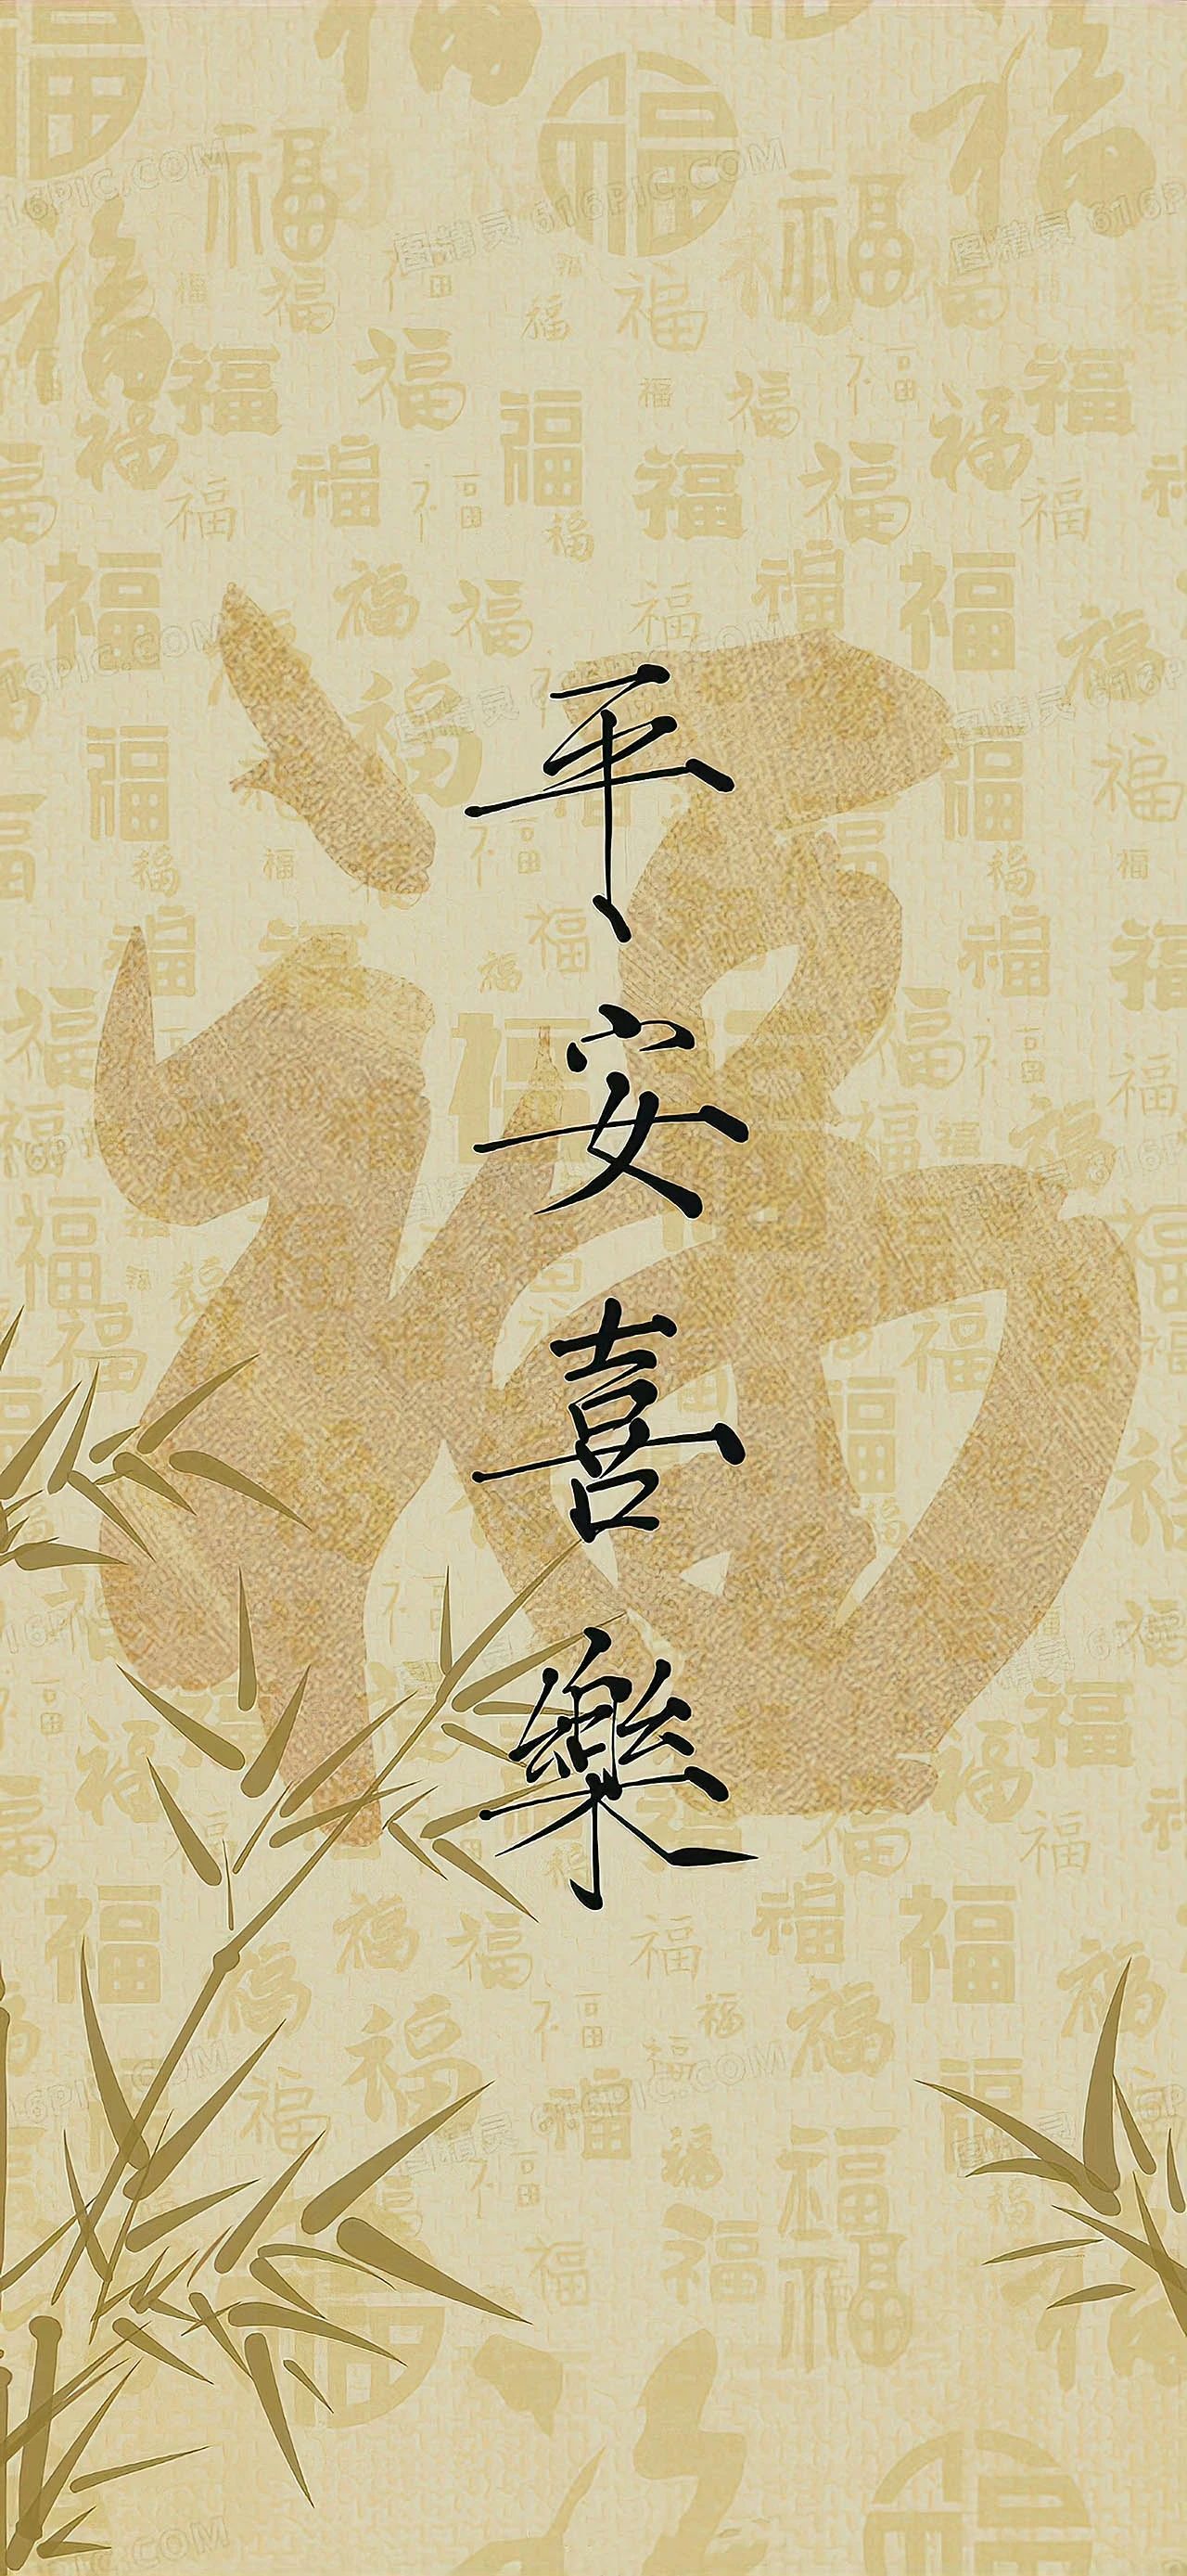 平安喜樂
福